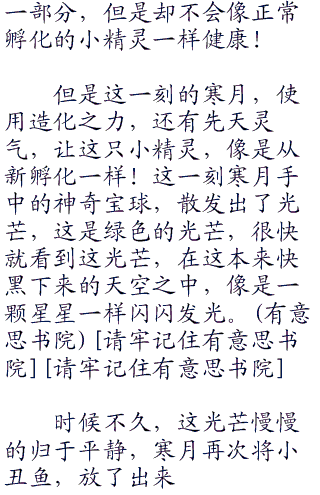 一部分，但是却不会像正常
孵化的小精灵一样健康！
但是这一刻的寒月，使
用造化之力，还有先天灵
气，让这只小精灵，像是从
新孵化一样！这一刻寒月手
中的神奇宝球，散发出了光
芒，这是绿色的光芒，很快
就看到这光芒，在这本来快
黑下来的天空之中，像是一
颗星星一样闪闪发光。(有意
思书院) [请牢记住有意思书
院] [请牢记住有意思书院]
时候不久，这光芒慢慢
的归于平静，寒月再次将小
丑鱼，放了出来